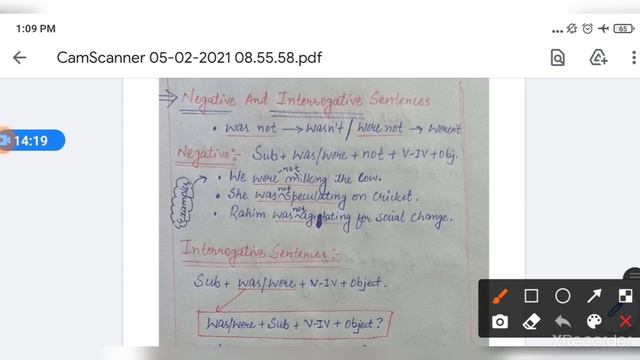 1:09 PM
65
CamScanner 05-02-2021 08.55.58.pdf
14:19
Negative And Interrogative Sentences
• was not → wasn't / were not → weren't
Negative:- Sub + was/were + not + V-IV + Obj.
• We were not milking the cow.
• She was not speculating on cricket.
Examples
• Rahim was not agitating for social change.
Interrogative Sentences:-
Sub + was/were + V-IV + Object.
Was/were + Sub + V-IV + Object?
XRecorder